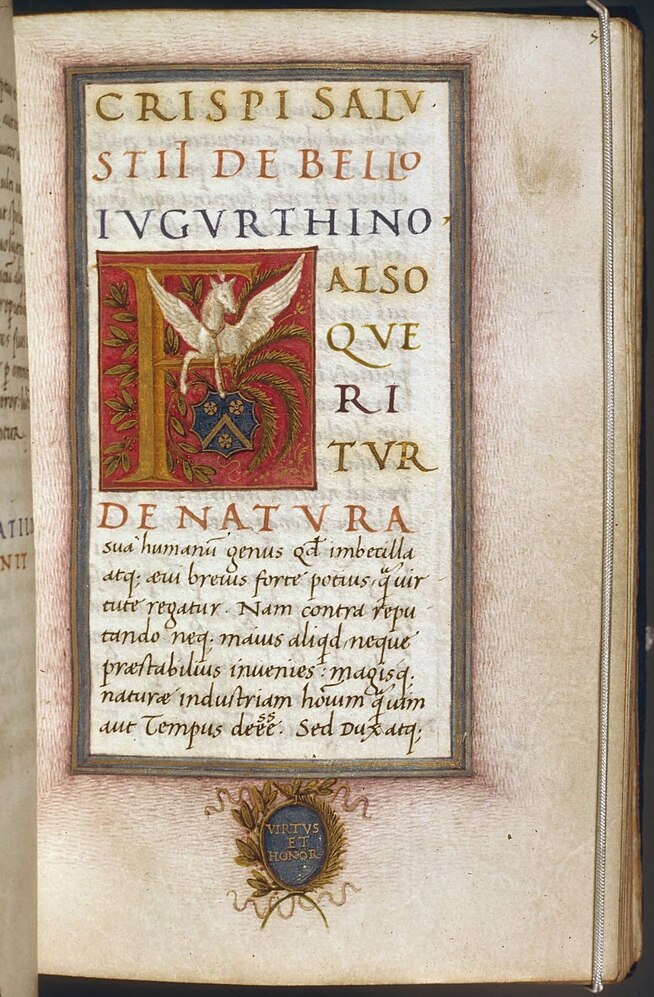 CRISPI SALV
STII DE BELLO
IVGVRTHINO
FALSO
QVE
RI
TVR
DE NATVRA
sua humanū genus qđ imbecilla
atq; æui breuis forte potius, q̄ uir
tute regatur. Nam contra repu
tando neq; maius aliqd, neque
præstabilius inuenies: magisq;
naturæ industriam hoium q̄ uim
aut Tempus deēē. Sed Dux atq;
VIRTVS
ET
HONOR